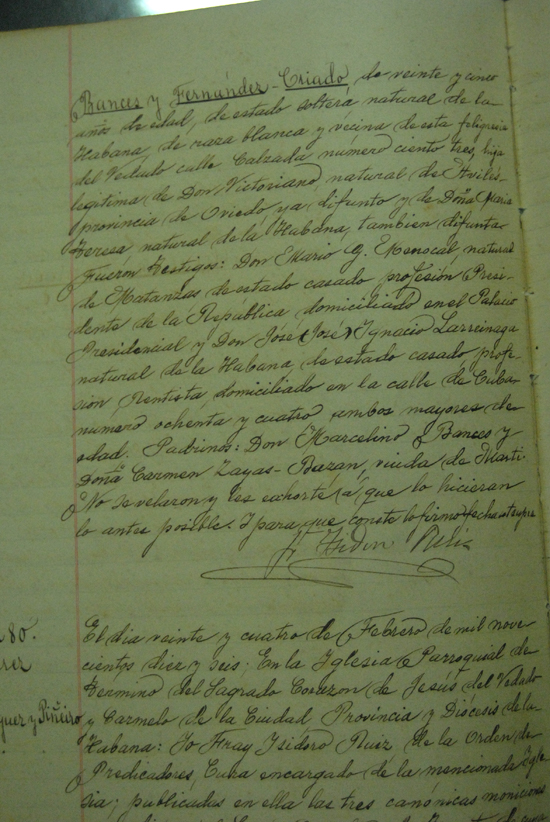 Bances y Fernández-Criado, de veinte y cinco
años de edad, de estado soltera natural de la
Habana, de raza blanca y vecina de esta feligresia
del Vedado calle Calzada numero ciento tres, hija
legitima de Don Victoriano, natural de Aviles
provincia de Oviedo ya difunto y de Doña Maria
Teresa natural de la Habana, tambien difunta
Fueron testigos: Don Mario G. Menocal, natural
de Matanzas de estado casado, profesión Presi-
dente de la República domiciliado en el Palacio
Presidencial y Don José (José) Ygnacio Larrinaga
natural de la Habana, de estado casado, profe-
sion Rentista, domiciliado en la calle de Cuba
numero ochenta y cuatro ambos mayores de
edad. Padrinos: Don Marcelino Bances y
Doña Carmen Zayas-Bazan, viuda de Marti
No se velaron y les exhorte (a) que lo hicieran
lo antes posible. Y para que conste lo firmo fecha ut supra
Fr. Isidro Ruiz
80.
rez
guez y Piñeiro
El dia veinte y cuatro de Febrero de mil nove-
cientos diez y seis: En la Iglesia Parroquial de
Termino del Sagrado Corazon de Jesús del Vedado
y Carmelo de la Ciudad Provincia y Diócesis de la
Habana: Yo Fray Isidoro Ruiz, de la Orden de
Predicadores, Cura encargado de la mencionada Igle-
sia; publicadas en ella las tres canónicas moniciones